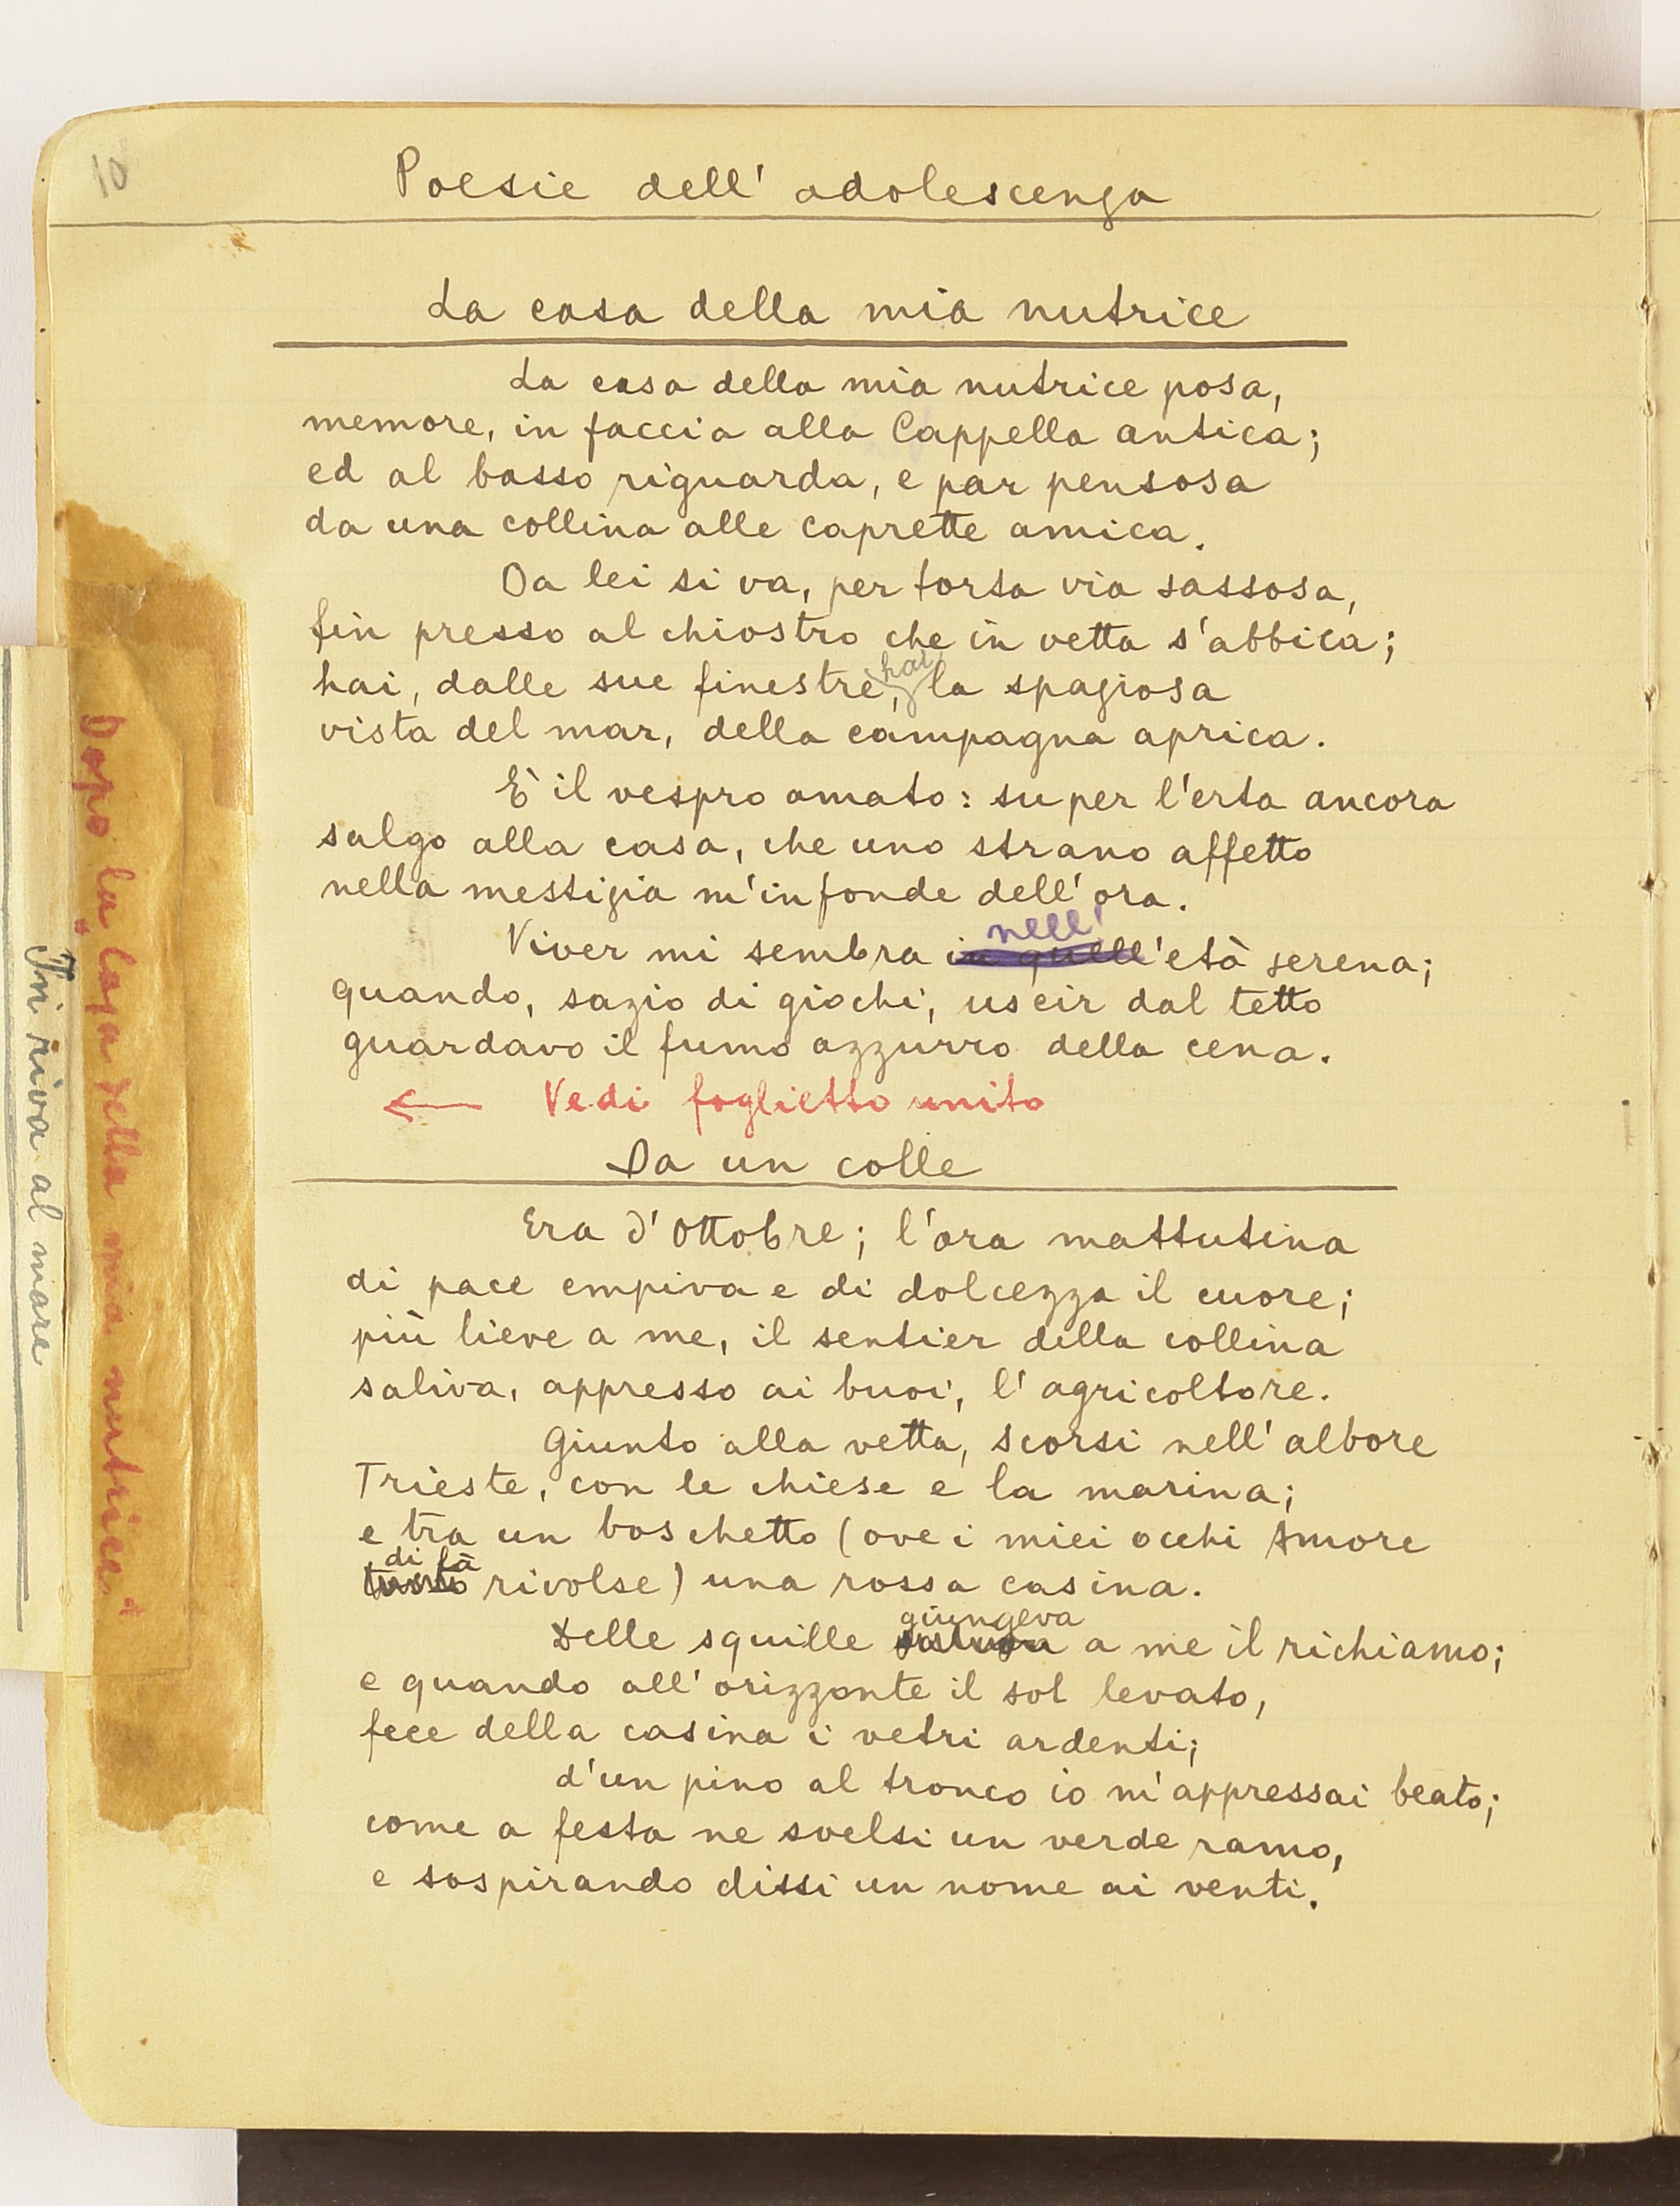 10
Poesie dell' adolescenza
La casa della mia nutrice
La casa della mia nutrice posa,
memore, in faccia alla Cappella antica;
ed al basso riguarda, e par pensosa
da una collina alle caprette amica.
Da lei si va, per torta via sassosa,
fin presso al chiostro che in vetta s'abbica;
hai
hai, dalle sue finestre, la spaziosa
vista del mar, della campagna aprica.
È il vespro amato: su per l'erta ancora
salgo alla casa, che uno strano affetto
nella mestizia m'infonde dell'ora.
nell'
Viver mi sembra in quell'età serena;
quando, sazio di giochi, uscir dal tetto
guardavo il fumo azzurro della cena.
← Vedi foglietto unito
Da un colle
Era d'Ottobre; l'ora mattutina
di pace empiva e di dolcezza il cuore;
più lieve a me, il sentier della collina
saliva, appresso ai buoi, l'agricoltore.
Giunto alla vetta, scorsi nell'albore
Trieste, con le chiese e la marina;
e tra un boschetto (ove i miei occhi Amore
di là
rivolse) una rossa casina.
giungeva
Delle squille a me il richiamo;
e quando all'orizzonte il sol levato,
fece della casina i vetri ardenti;
d'un pino al tronco io m'appressai beato;
come a festa ne svelsi un verde ramo,
e sospirando dissi un nome ai venti.
Dopo "la Casa della mia nutrice"
In riva al mare